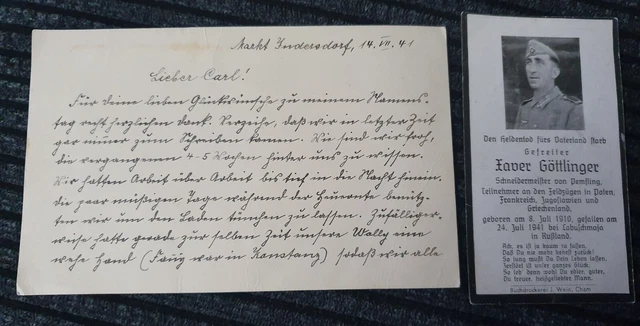 Markt Indersdorf, 14. VII. 41
Lieber Carl!
Für deine lieben Glückwünsche zu meinem Namens-
tag recht herzlichen Dank. Verzeihe, daß wir in letzter Zeit
gar nimmer zum Schreiben kamen. Wir sind wir froh,
die vergangenen 4-5 Wochen hinter uns zu wissen.
Wir hatten Arbeit über Arbeit bis tief in die Nacht hinein.
die paar müßigen Tage während der Heuernte benütz-
ten wir um den Laden tünchen zu lassen. Zufälliger-
weise hatte gerade zur selben Zeit unsere Wally eine
wehe Hand ( war in Konstanz) sodaß wir alle
Den Heldentod fürs Vaterland starb
Gefreiter
Xaver Göttlinger
Schneidermeister von Pemfling
Teilnehmer an den Feldzügen in Polen,
Frankreich, Jugoslawien und
Griechenland,
geboren am 8. Juli 1910, gefallen am
24. Juli 1941 bei Labuschmaja
in Rußland.
Ach, es ist ja kaum zu fassen,
Daß Du nie mehr kehrst zurück!
So jung mußt Du Dein Leben lassen,
Zerstört ist unser ganzes Glück.
So leb' denn wohl Du edler, guter,
Du treuer, heißgeliebter Mann.
Buchdruckerei J. Wein, Cham